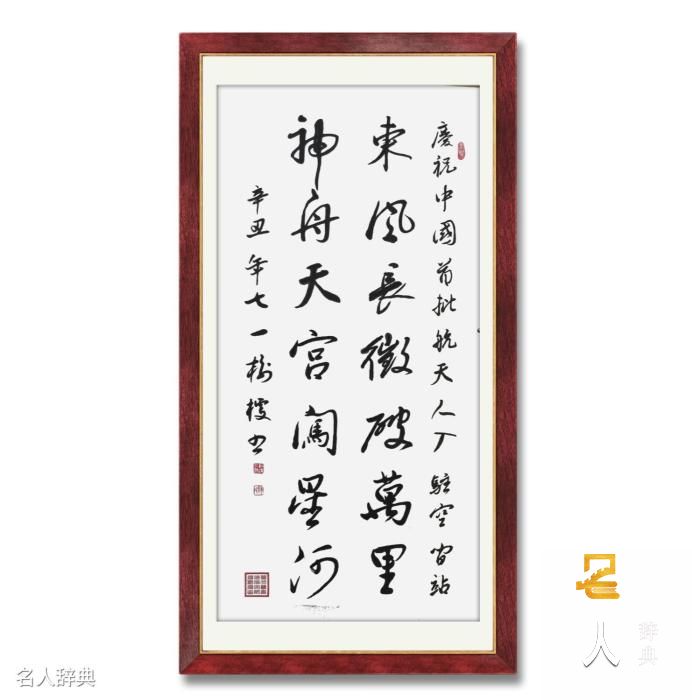 慶祝中國首批航天人入駐空間站
東風長徵破萬里
神舟天宮闖星河
辛丑年七一樹樓书
名人辞典
名人
辞典